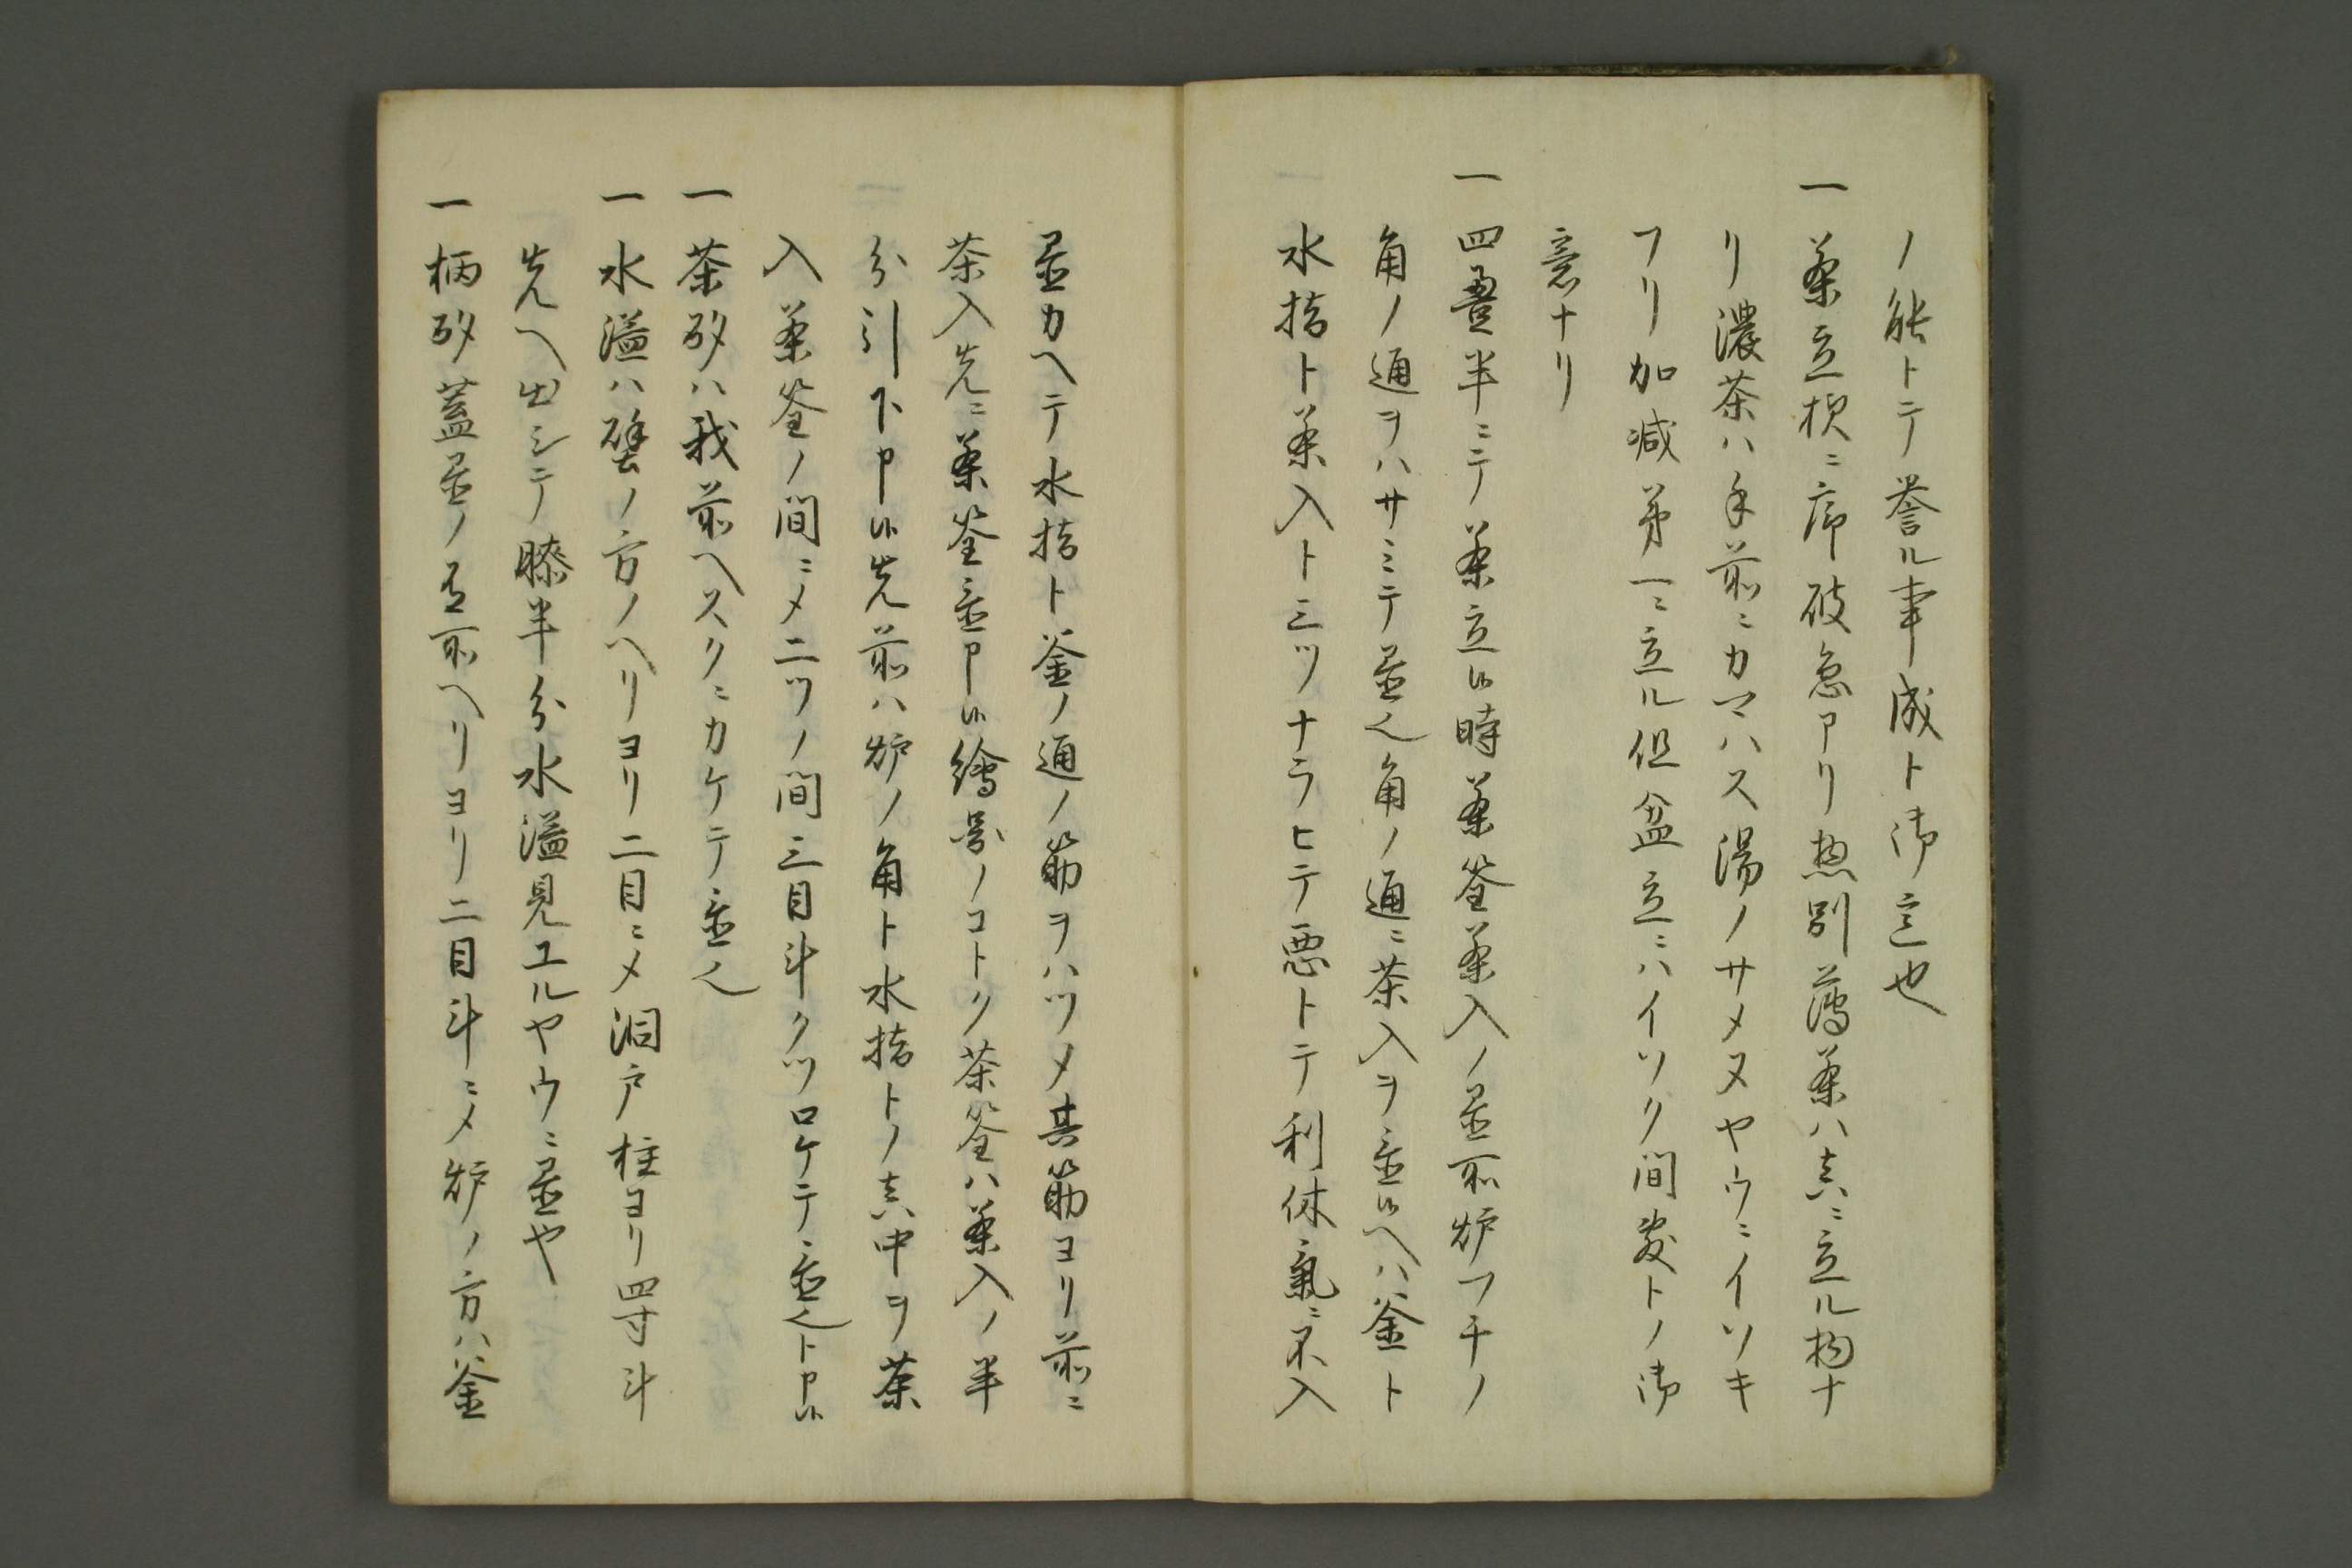 ノ能トテ誉ル事成ト御言也
一 茶立様ニ序破急アリ惣別薄茶ハ真ニ立ル物ナ
リ濃茶ハ手前ニカマハス湯ノサメヌヤウニイソキ
フリ加減第一ニ立ル但盆立ニハイソク間敷トノ御
意ナリ
一 四畳半ニテ茶立候時茶筌茶入ノ置所炉フチノ
角ノ通ヲハサミテ置也角ノ通ニ茶入ヲ置候ヘハ釜ト
水指ト茶入ト三ツナラヒテ悪トテ利休氣ニ不入
置カヘテ水指ト釜ノ通ノ筋ヲハツメ其筋ヨリ前ニ
茶入先ニ茶筌置申候繪図ノコトク茶筌ハ茶入ノ半
分引下申候先前ハ炉ノ角ト水指トノ真中ヲ茶
入茶筌ノ間ニメ二ツノ間三目斗クツロケテ置也ト申候
一 茶杓ハ我前ヘスクニカケテ置也
一 水溢ハ壁ノ方ノヘリヨリ二目ニメ洞戸柱ヨリ四寸斗
先ヘ出シテ膝半分水溢見エルヤウニ置也
一 柄杓蓋置ノ置所ヘリヨリ二目斗ニメ炉ノ方ハ釜